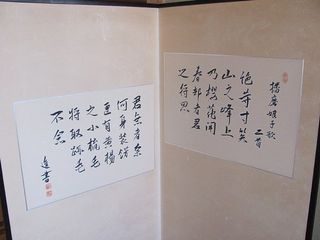 播磨娘子歌
二首
絶等寸笑
山之峰上
乃櫻花開
春部者君
之将思
君無者奈
何身装餝
匣有黄楊
之小梳毛
将取跡毛
不念
進書